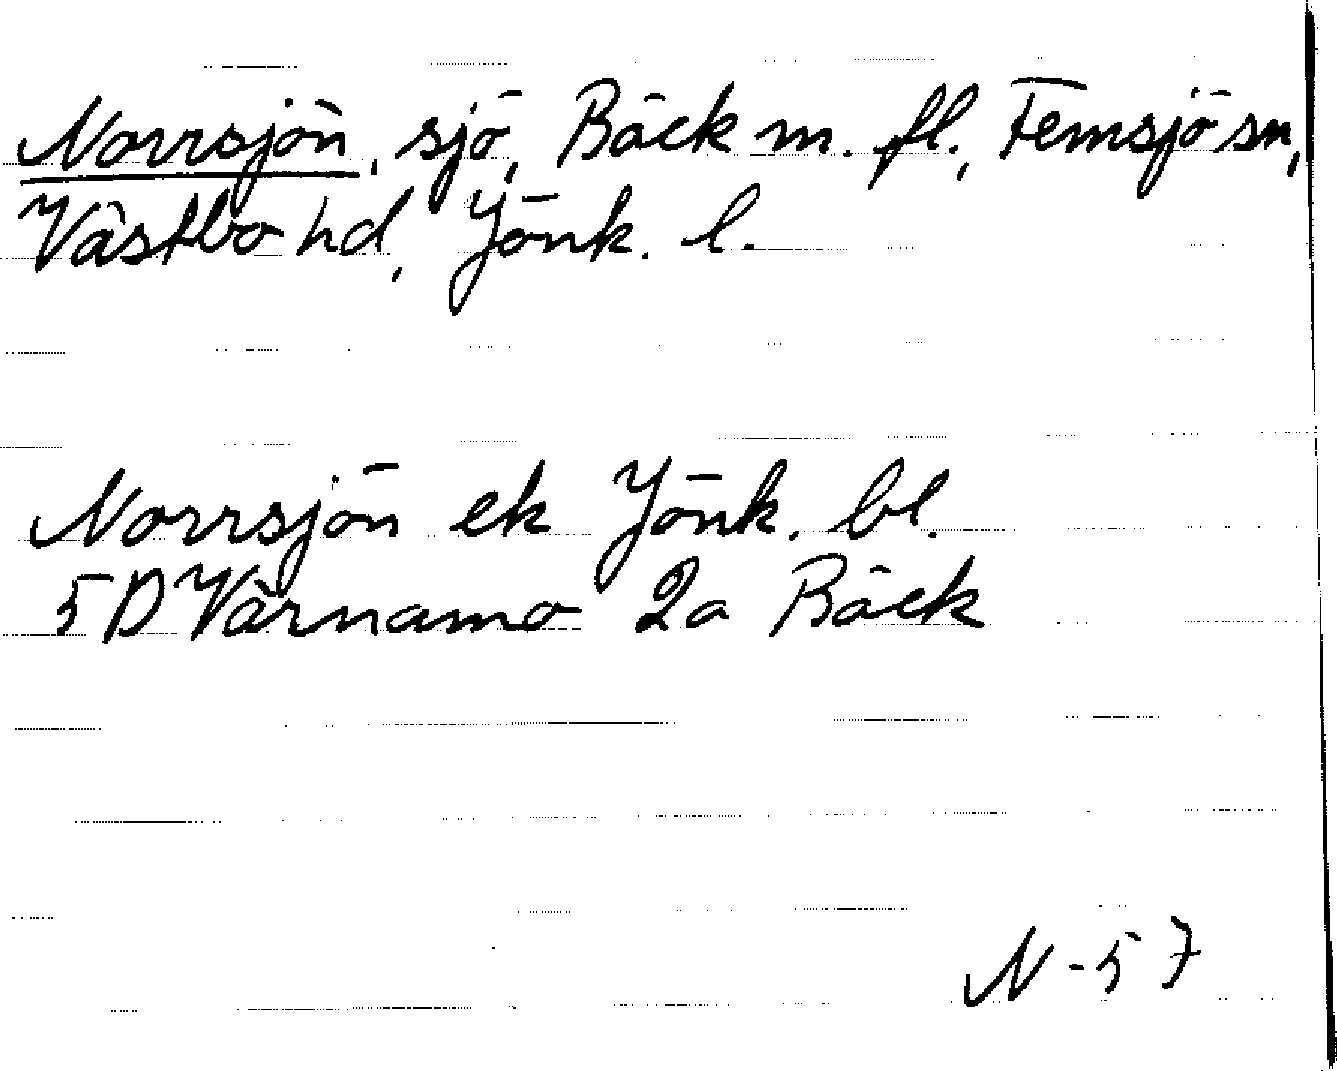 Norrsjön, sjö, Bäck m. fl., Femsjö sn,
Västbo hd, Jönk. l.
Norrsjön ek Jönk. bl.
5D Värnamo 2a Bäck
N-57